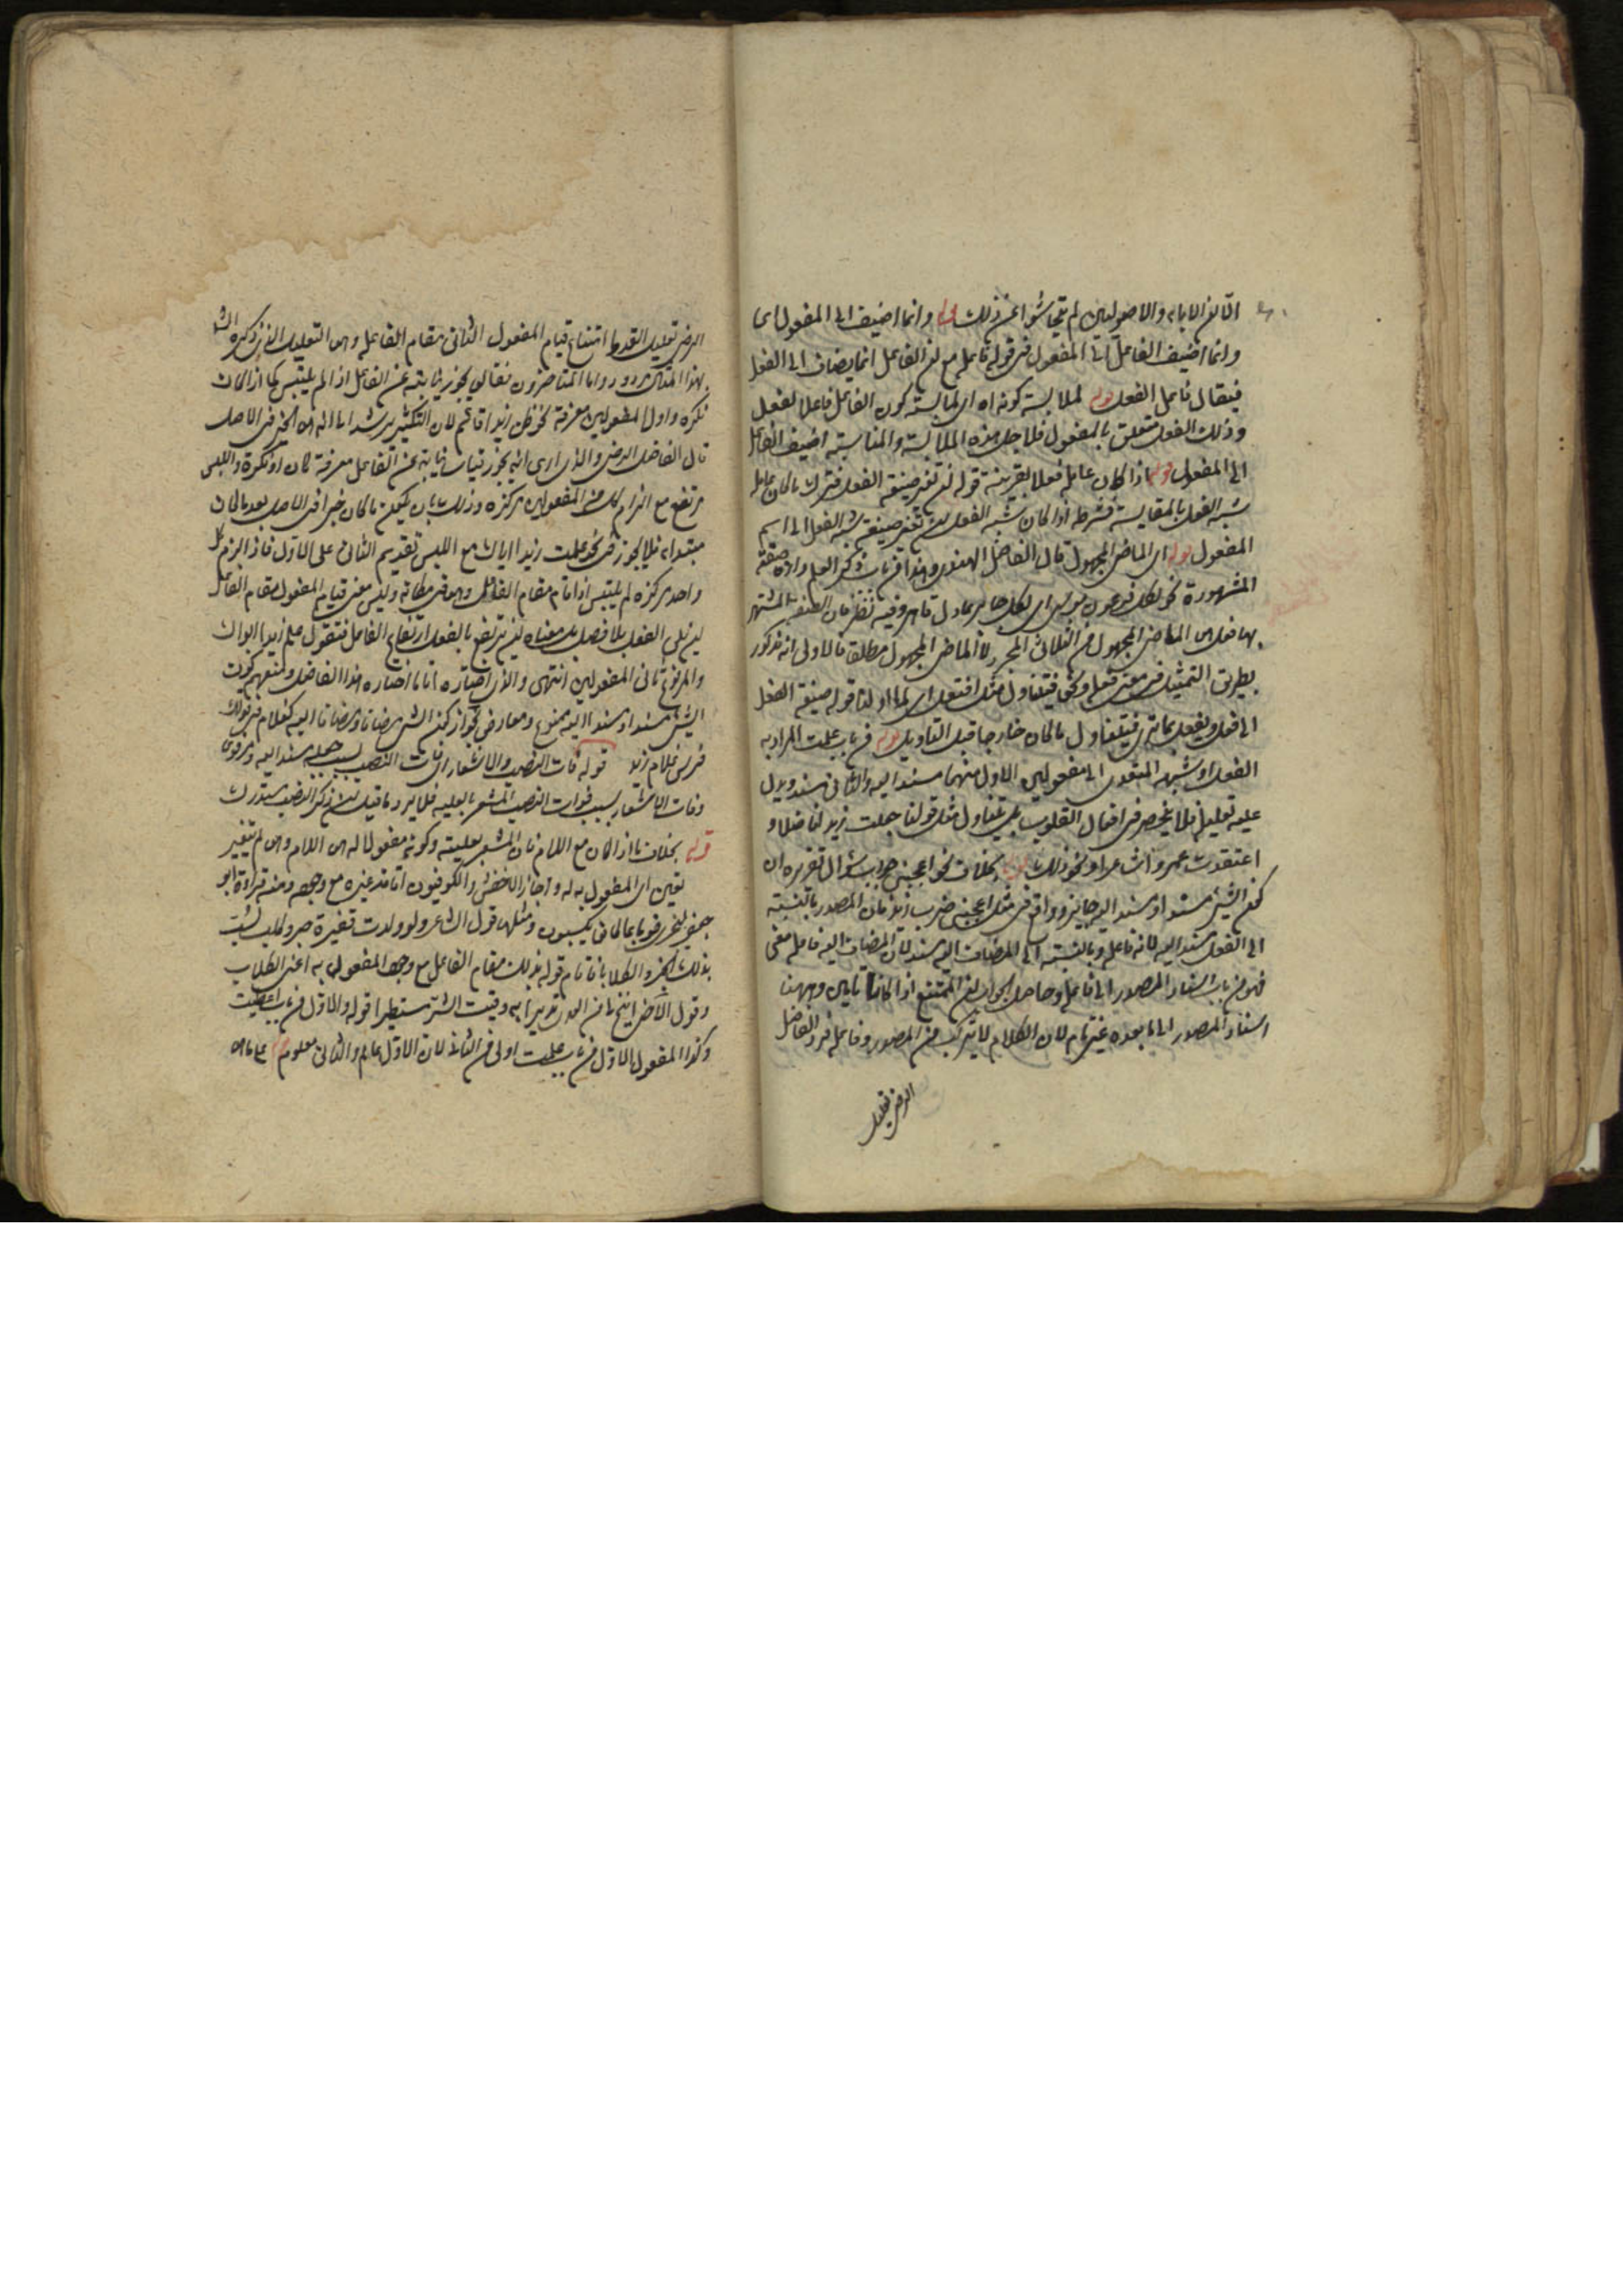 الا ان الادباء والاصوليين لم يتحاشوا عن ذلك قوله وانما اضيف الى المفعول اى
وانما اضيف الفاعل الى المفعول فى قوله فاعله مع ان الفاعل انما يضاف الى الفعل
فيقال فاعل الفعل قوله لملابسة كونه اه اى لملابسة كون الفاعل فاعلا لفعل
وذلك الفعل متعلق بالمفعول فلاجل هذه الملابسة والمناسبة اضيف الفاعل
الى المفعول قوله اذا كان عامله فعلا بقرينة قوله ان تغير صيغة الفعل فترك ما كان عامله
شبه الفعل بالمقايسة فشرطه اذا كان شبه الفعل ان تغير صيغة شبه الفعل الى اسم
المفعول قوله اى الماضى المجهول قال الفاضل الهندى وهذا من باب ذكر العلم وارادة صفته
المشهورة نحو لكل فرعون موسى اى لكل جابر عادل قاهر وفيه نظر فان الصفة المشتهر
بها فعل هى الماضى المجهول من الثلاثى المجرد لا الماضى المجهول مطلقا فالاولى انه مذكور
بطريق التمثيل فمعنى فعل ونحوه فيتناول مثل افتعل اى لما اول قوله صيغة الفعل
الى فعل ويفعل بما ترى فيتناول ما كان خارجا قبل التاويل قوله من باب علمت المراد به
الفعل او شبهه المتعدى الى مفعولين الاول منهما مسند اليه والثانى مسند ويدل
عليه تعليله فلا ينحصر فى افعال القلوب بل يتناول مثل قولنا جعلت زيدا فاضلا و
اعتقدت عمروا شاعرا ونحو ذلك قوله بخلاف نحو اعجبنى جواب سؤال تقريره ان
كون الشىء مسندا ومسندا اليه جايز وواقع فى مثل اعجبنى ضرب زيد فان المصدر بالنسبة
الى الفعل مسند اليه لانه فاعله وبالنسبة الى المضاف اليه مسند لان المضاف اليه فاعله معنى
فهو من باب اسناد المصدر الى فاعله وحاصل الجواب ان الممتنع اذا كانا تامين وههنا
اسناد المصدر الى ما بعده غير تام لان الكلام لا يتركب من المصدر وفاعله قوله الفاضل
الرضى تعليل
الرضى تعليل القدماء امتناع قيام المفعول الثانى مقام الفاعل وهو التعليل الذى ذكره الش
بهذا المثال مردود واما المتاخرون فقالوا يجوز نيابته عن الفاعل اذا لم يلتبس كما اذا كان
نكرة واول المفعولين معرفة نحو ظن زيدا قائم لان التنكير يرشد الى انه هو الخبر فى الاصل
قال الفاضل الرضى والذى ارى انه يجوز قياسا نيابته عن الفاعل معرفة كان او نكرة واللبس
مرتفع مع الزام كل من المفعولين مركزه وذلك بان يكون ما كان خبرا فى الاصل بعد ما كان
مبتداء فلا يجوز فى نحو علمت زيدا اباك مع اللبس تقديم الثانى على الاول فاذا الزم كل
واحد مركزه لم يلتبس اذا قام مقام الفاعل وهو فى مكانه وليس معنى قيام المفعول مقام الفاعل
ان يلى الفعل بلا فصل بل معناه ان يرتفع بالفعل ارتفاع الفاعل فتقول علم زيدا ابوك
والمرفوع ثانى المفعولين انتهى والذى اختاره انما اختاره هذا الفاضل ومنعهم كون
الشىء مسندا ومسندا اليه ممنوع ومعارض بجواز كون الشىء مضافا ومضافا اليه كغلام فى قولك
فرس غلام زيد قوله فات النصب والاشعار اى فات النصب بسبب جعله مسندا اليه
وفات الاشعار بسبب فوات النصب المشعر بالعلية فلا يرد ما قيل ان ذكر النصب مستدرك
قوله بخلاف ما اذا كان مع اللام فان المشعر بعليته وكونه مفعولا له هى اللام وهى لم يتغير
تعين اى المفعول به له واجاز الاخفش والكوفيون اقامة غيره مع وجوده ومنه قراءة ابو
جعفر ليجزى قوما بما كانوا يكسبون ومثلها قول الشاعر ولو ولدت قفيرة جرو كلب لسب
بذلك الجرو الكلابا فاقام قوله بذلك مقام الفاعل مع وجود المفعول به اعنى الكلاب
وقول الآخر
وكذا المفعول الاول من باب علمت اولى من الثانى لان الاول عالم والثانى معلوم